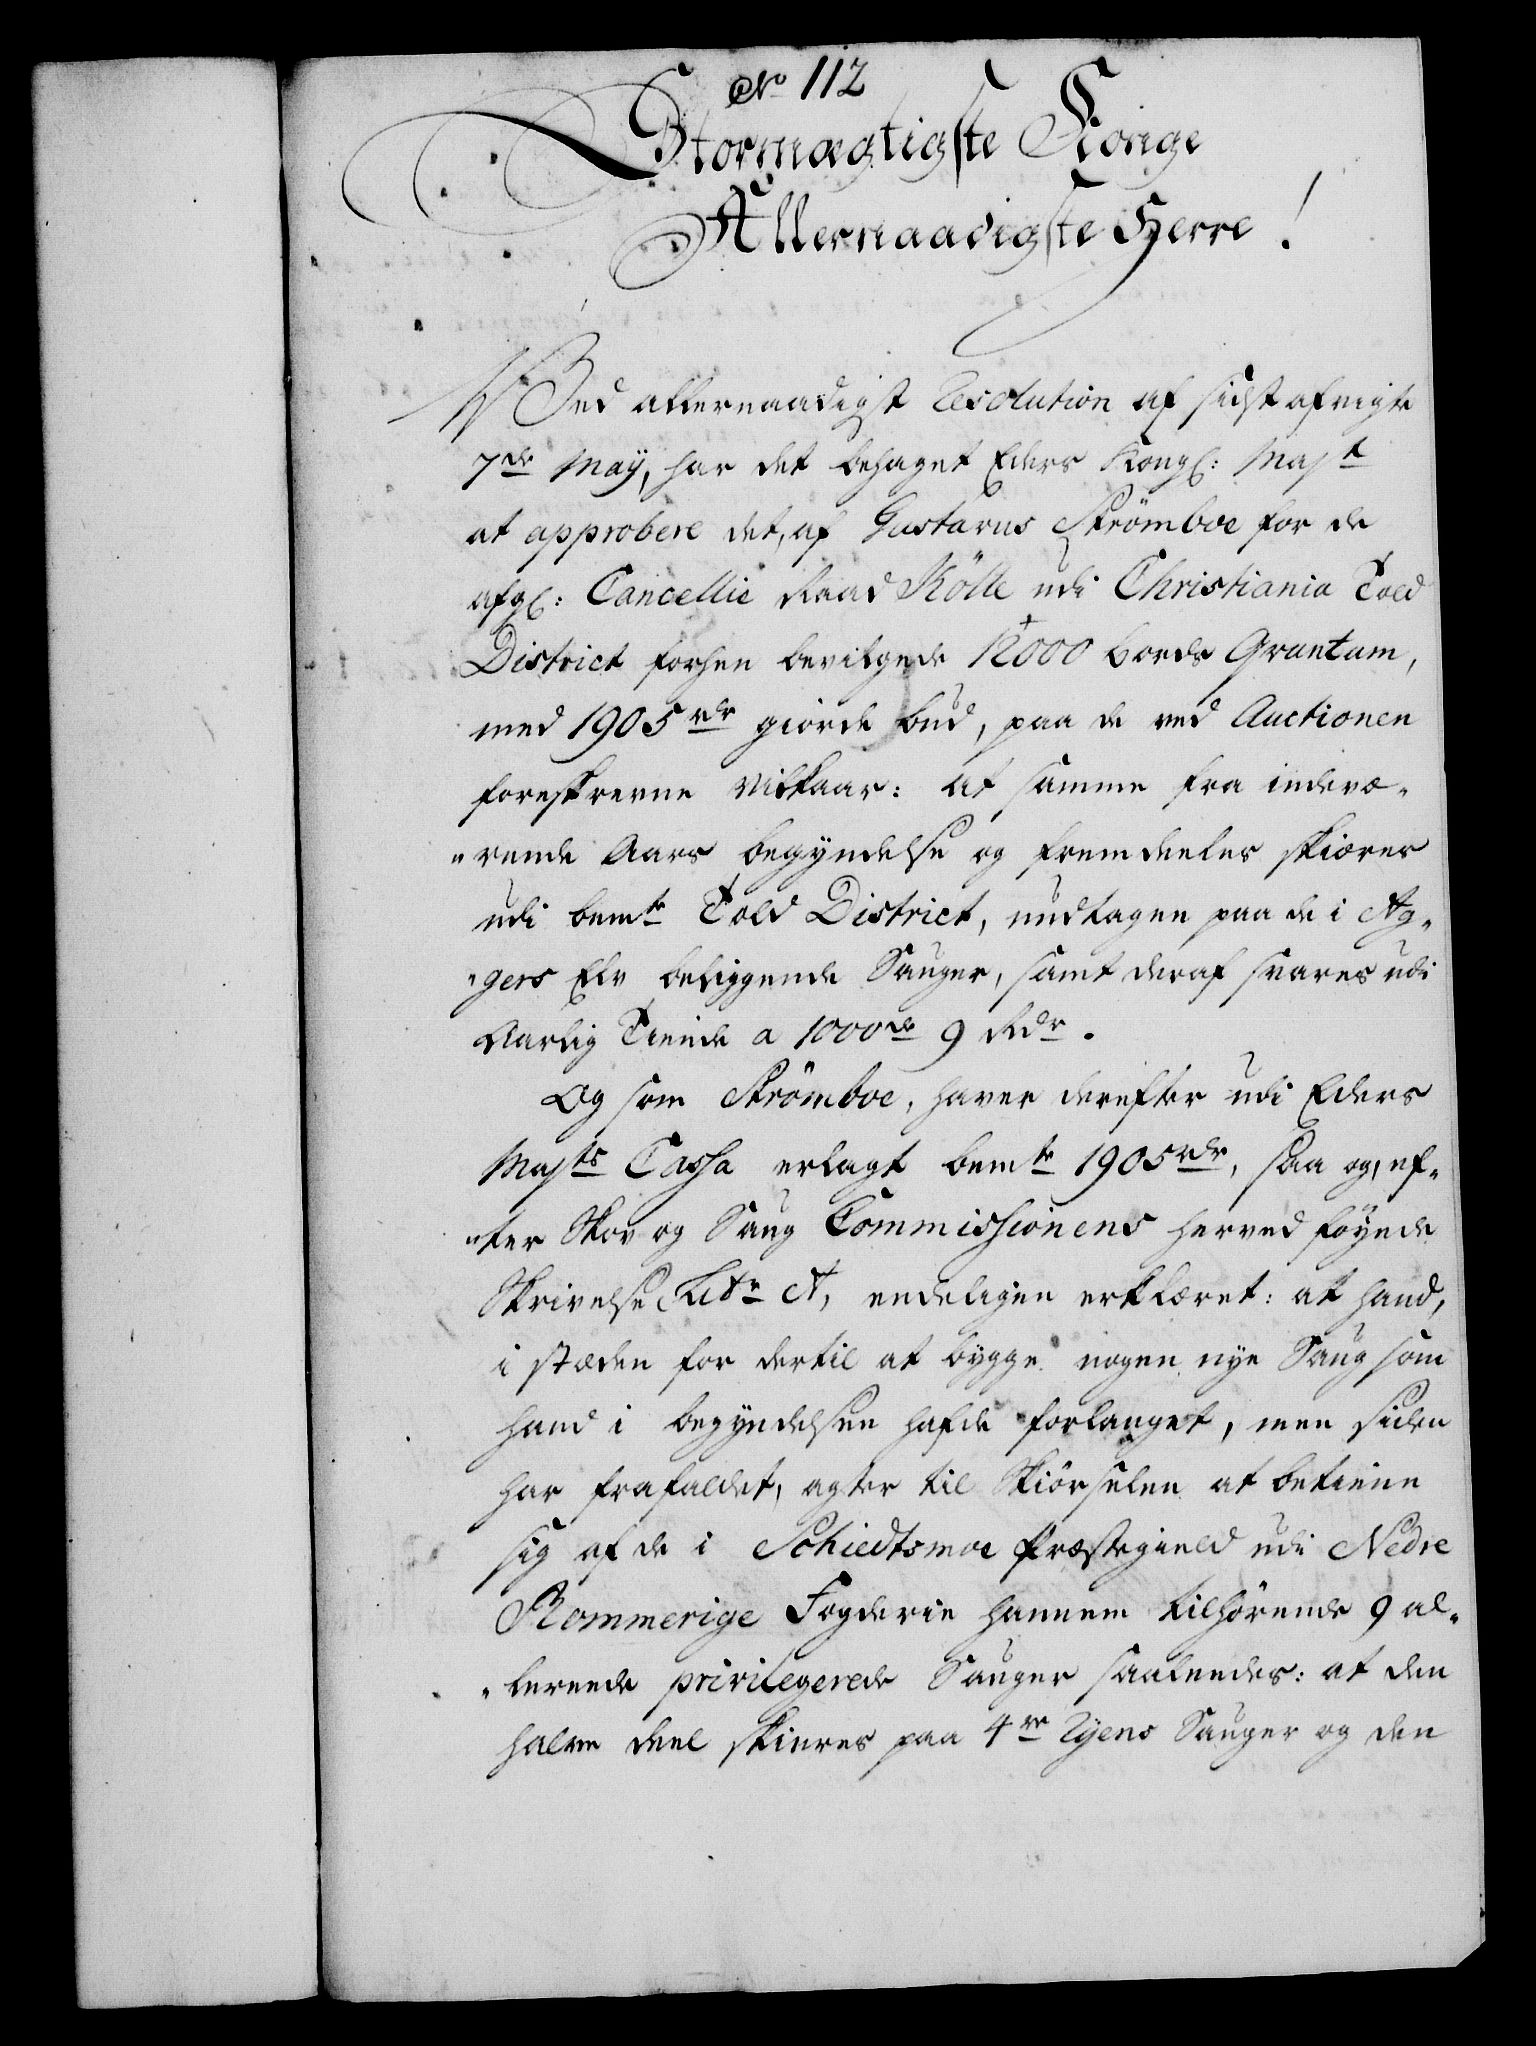 No 112
Stormægtigste Konge
Allernaadigste Herre!
Ved allernaadigst Resolution af sidst afvigte
7de Maÿ, har det behaget Eders Kongl: Majt
at approbere det, af Gustavus Strömboe for de
afgl: Cancellie Raad Kölle udi Christiania Told
District forhen bevilgede 12000 bords Qvantum,
med 1905 rdr giorde bud, paa de ved Auctionen
foreskrevne Vilkaar: at samme fra indevæ-
"rende Aars begyndelse og fremdeeles skiæres
udi bemte Told District, undtagen paa de i Ag-
"gers Elv beliggende Sauger, samt deraf svares udi
Aarlig Tiende a 1000de 9 Rdr.
Og som Strömboe, haver derefter udi Eders
Majts Cassa erlagt bemte 1905 rdr, saa og, ef-
"ter Skov og Saug Commissionens herved föyede
Skrivelse Litr A, endeligen erklæret: at hand,
i stæden for dertil at bygge nogen nye Saug som
hand i begyndelsen hafde forlanget, men siden
har frafaldet, agter til Skiörselen at betiene
sig af de i Schiedtsmoe Præstegield udi Nedre
Rommerige Fogderie hannem tilhörende 9 al-
"lereede privilegerede Sauger saaledes: at den
halve deel skieres paa 4re Ryens Sauger og den